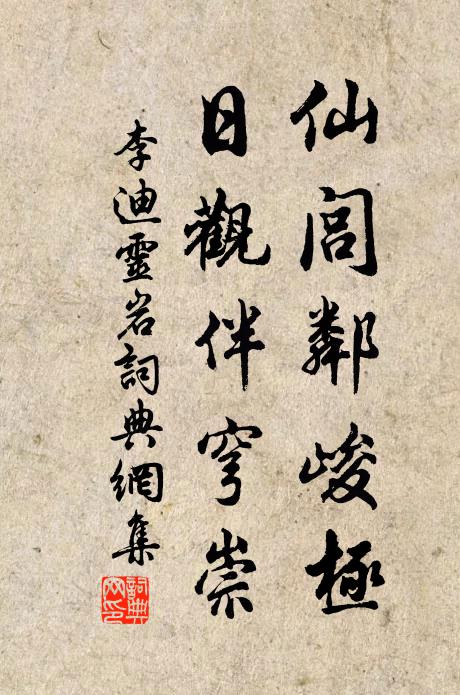 仙閭鄰峻極
日觀伴穹崇
李迪靈岩詞典網集
詞典網印